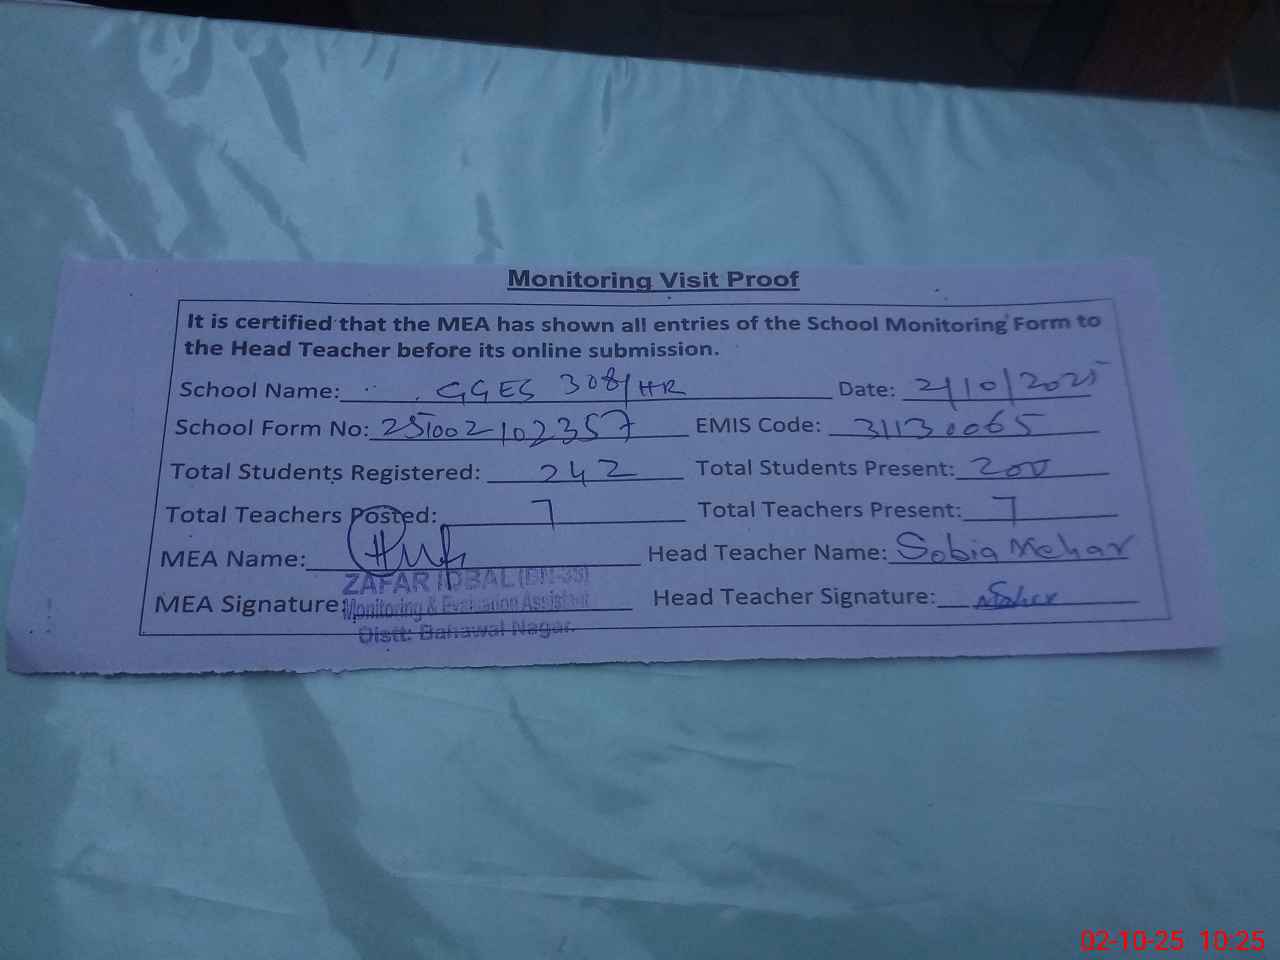 Monitoring Visit Proof
It is certified that the MEA has shown all entries of the School Monitoring Form to
the Head Teacher before its online submission.
School Name: GGES 308/HR Date: 2/10/2025
School Form No: 251002102357 EMIS Code: 31130065
Total Students Registered: 242 Total Students Present: 200
Total Teachers Posted: 7 Total Teachers Present: 7
MEA Name: Head Teacher Name: Sobia Mehar
ZAFAR IQBAL (BN-35)
MEA Signature: Monitoring & Evaluation Assistant Head Teacher Signature:
Distt: Bahawal Nagar.
02-10-25 10:25